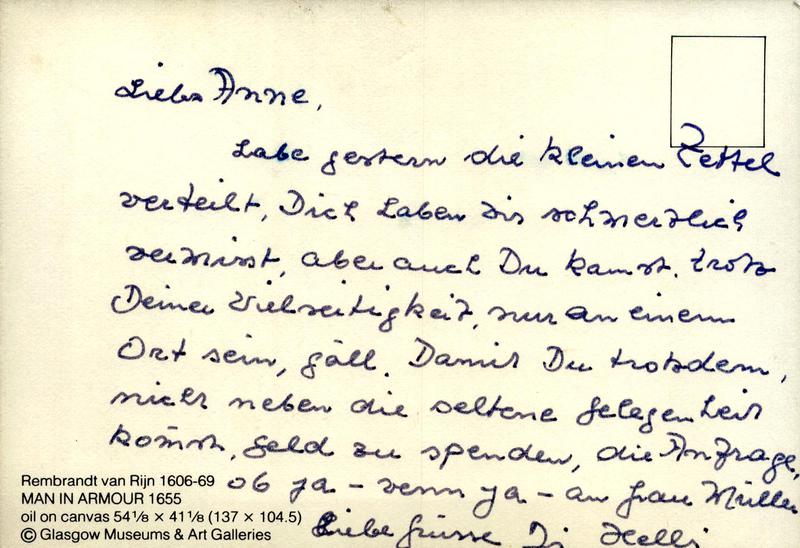 Liebe Anne,
habe gestern die kleinen Zettel
verteilt, Dich haben wir schmerzlich
vermisst, aber auch Du kannst, trotz
Deiner Vielseitigkeit, nur an einem
Ort sein, gäll. Damit Du trotzdem,
nicht neben die seltene Gelegenheit
kommst, Geld zu spenden, die Anfrage,
ob ja – wenn ja – an Frau Müller
Liebe Grüsse
Rembrandt van Rijn 1606-69
MAN IN ARMOUR 1655
oil on canvas 54 1/8 × 41 1/8 (137 × 104.5)
© Glasgow Museums & Art Galleries